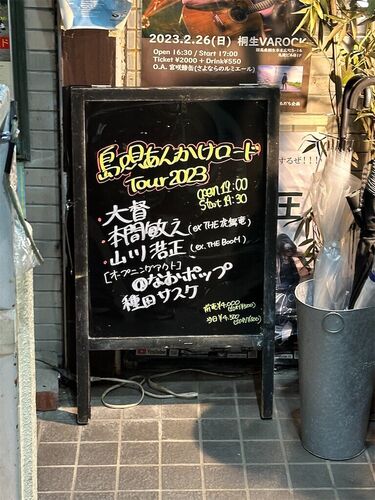 2023.2.26(日) 桐生VAROCK
Open 16:30 / Start 17:00
Ticket ¥2000 + Drink¥550
O.A. 宮咲静缶(さよならのルミエール)
島唄あんかけロード
Tour 2023
open 19:00
Start 19:30
・大督
・本間敏之(ex THE 虎舞竜)
・山川浩正(ex. THE BOOM)
[オープニングアクト]
なおポップ
種田サスケ
前売¥4,000
当日¥4,500
するぜ!!!